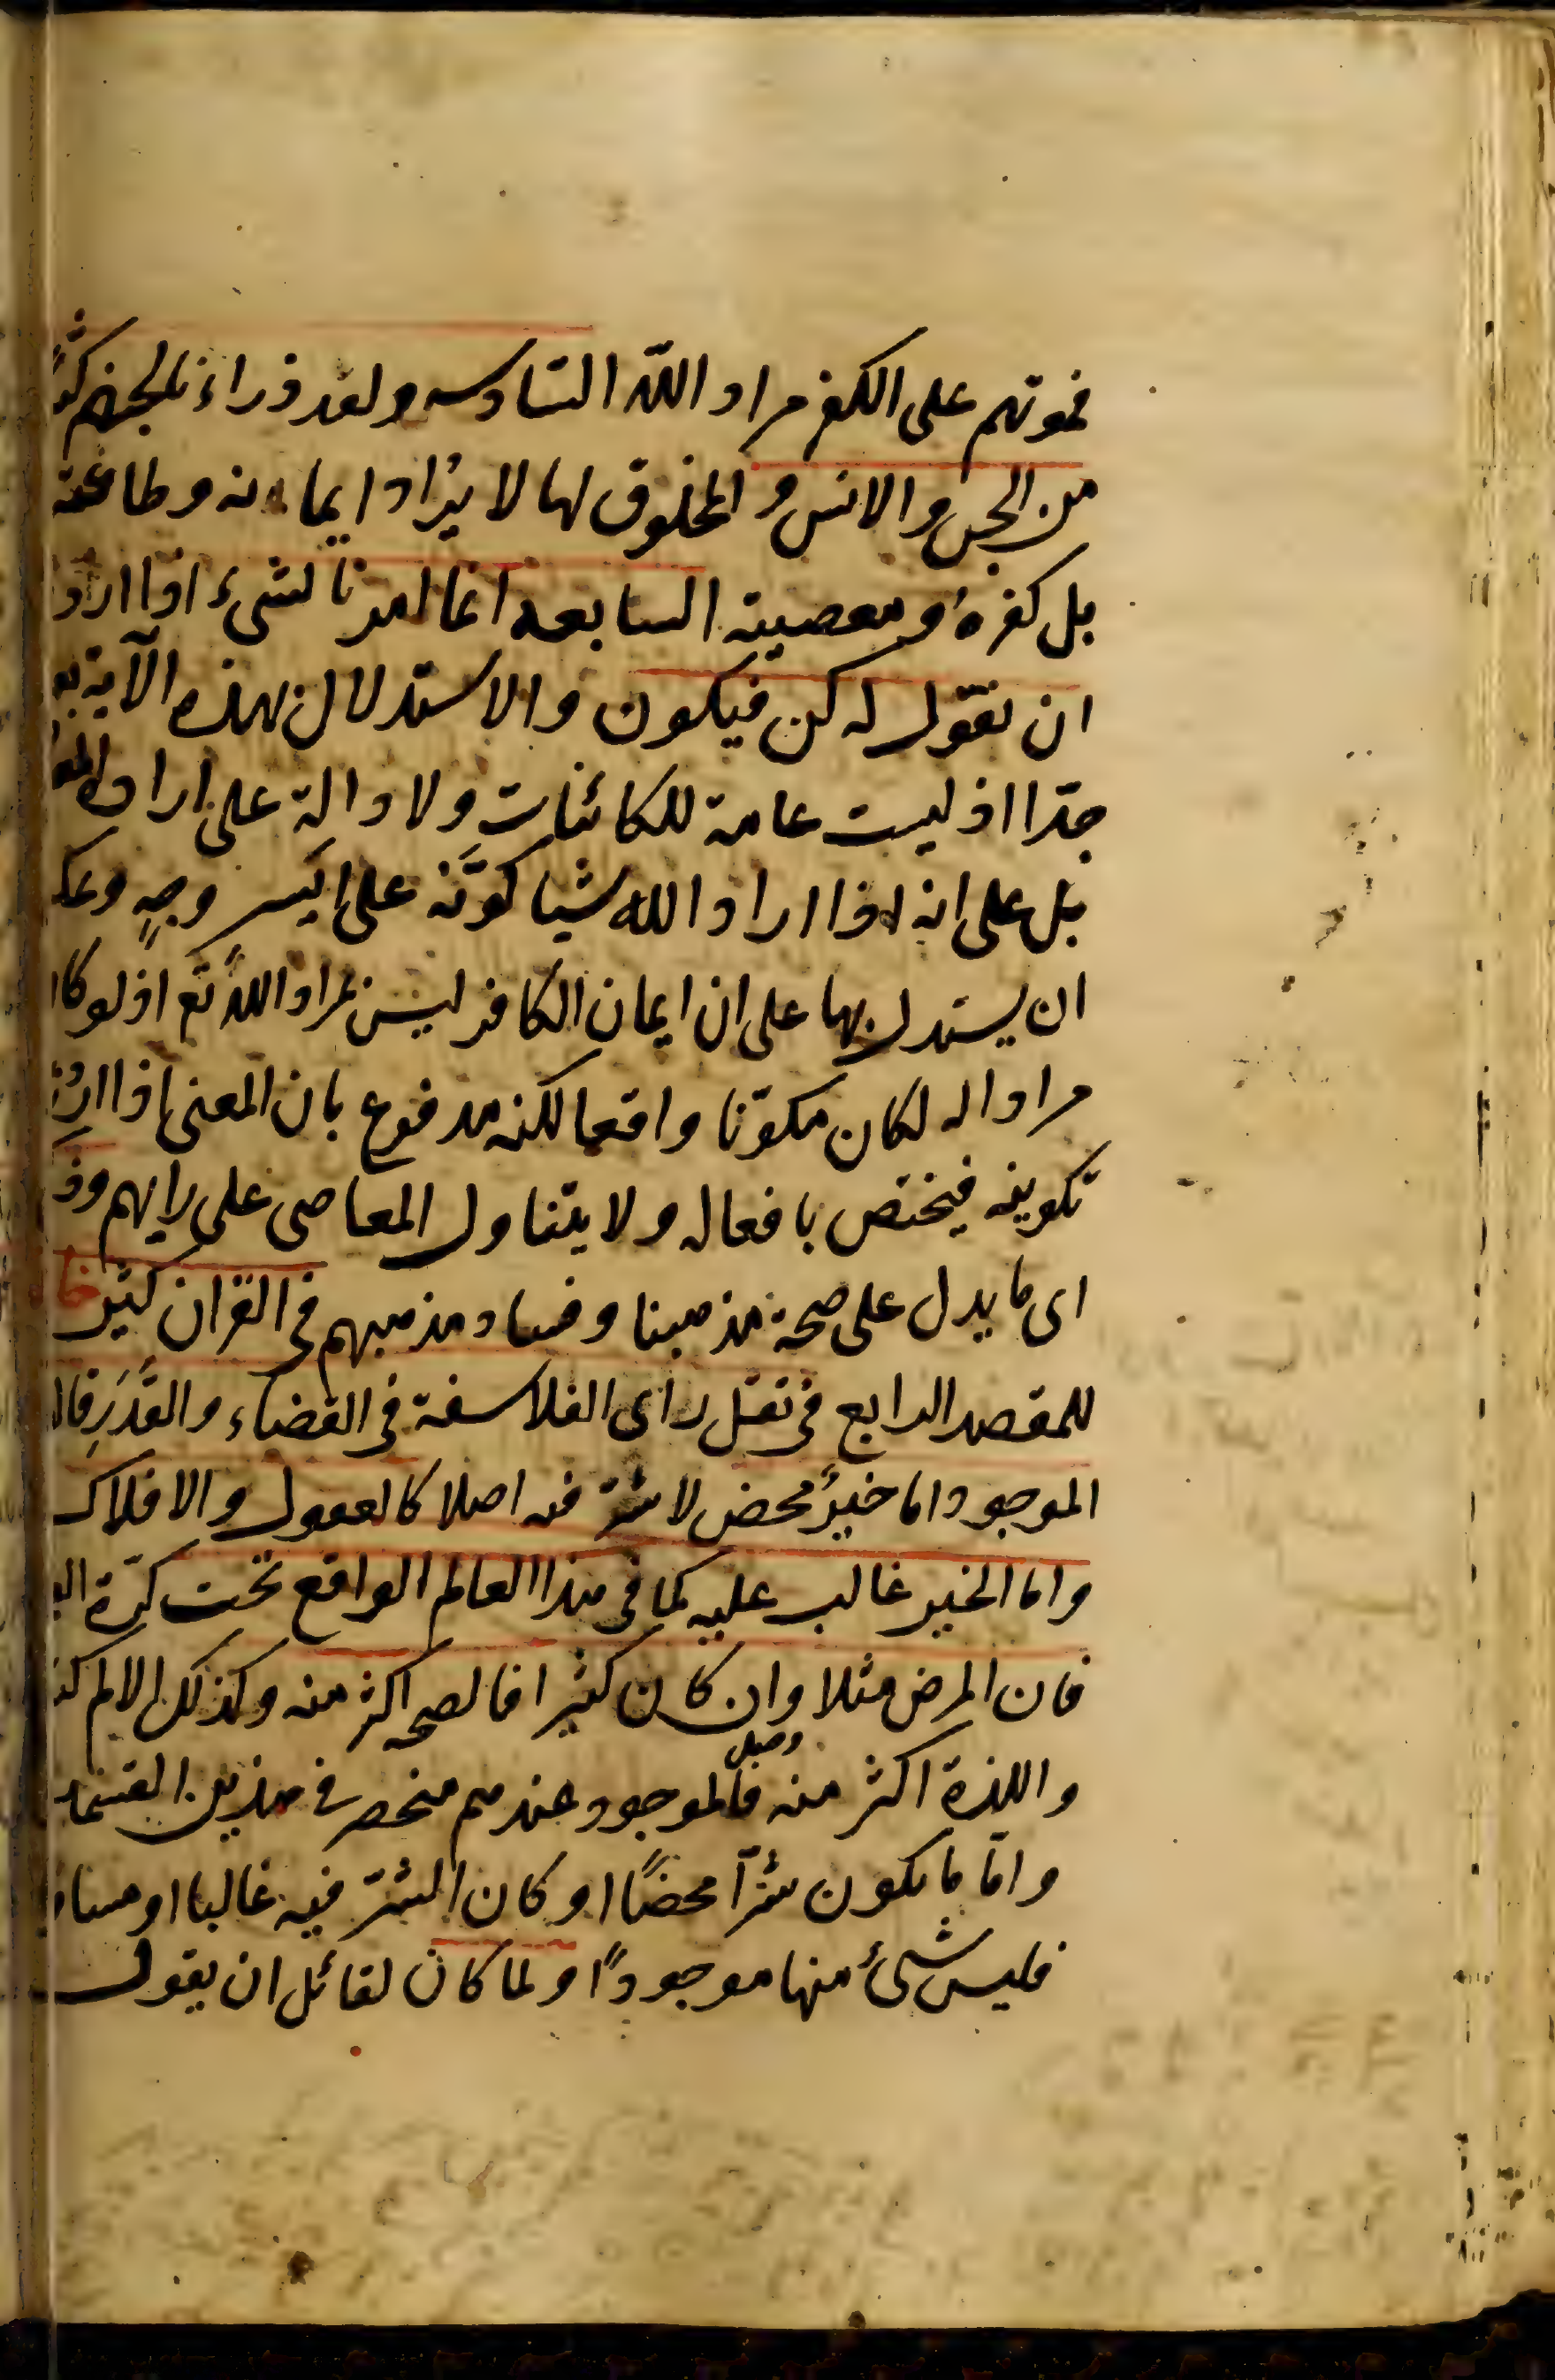 فموتهم على الكفر مراد الله السادسه ولقد ذراءنا لجهنم كثيرا
من الجن والانس والمخلوق لها لا يراد ايمانه وطاعته
بل كفره ومعصيته السابعه انما امرنا لشىء اذا ارد
ان نقول له كن فيكون والاستدلال بهذه الآية
جدا اذ ليست عامة للكائنات ولا دالة على ارادة
بل على انه اذا اراد الله شيا كوّنه على ايسر وجهٍ
ان يستدل بها على ان ايمان الكافر ليس بمراد اللّه تع اذ لو كا
مرادا له لكان مكوّنا واقعا لكنه مدفوع بان المعنى اذا
تكوينه فيختص بافعاله ولا يتناول المعاصى على رايهم
اى ما يدل على صحة مذهبنا وفساد مذهبهم فى القران كثير
للمقصد الرابع فى نقل راى الفلاسفة فى القضاء والقَدَرِ قال
الموجود اما خيرٌ محض لا شرّ فيه اصلا كالعقول والافلاك
واما الخير غالب عليه كما فى هذا العالم الواقع تحت كرة
فان المرض مثلا وان كان كثيرا فالصحه اكثر منه وكذلك الالم
واللذة اكثر منه فالموجود عندهم منحصر فى هذين القسمين
وامّا ما يكون شرّاً محضًا او كان الشرّ فيه غالبا او مساو
فليس شىءٌ منها موجودًا ولما كان لقائل ان يقول